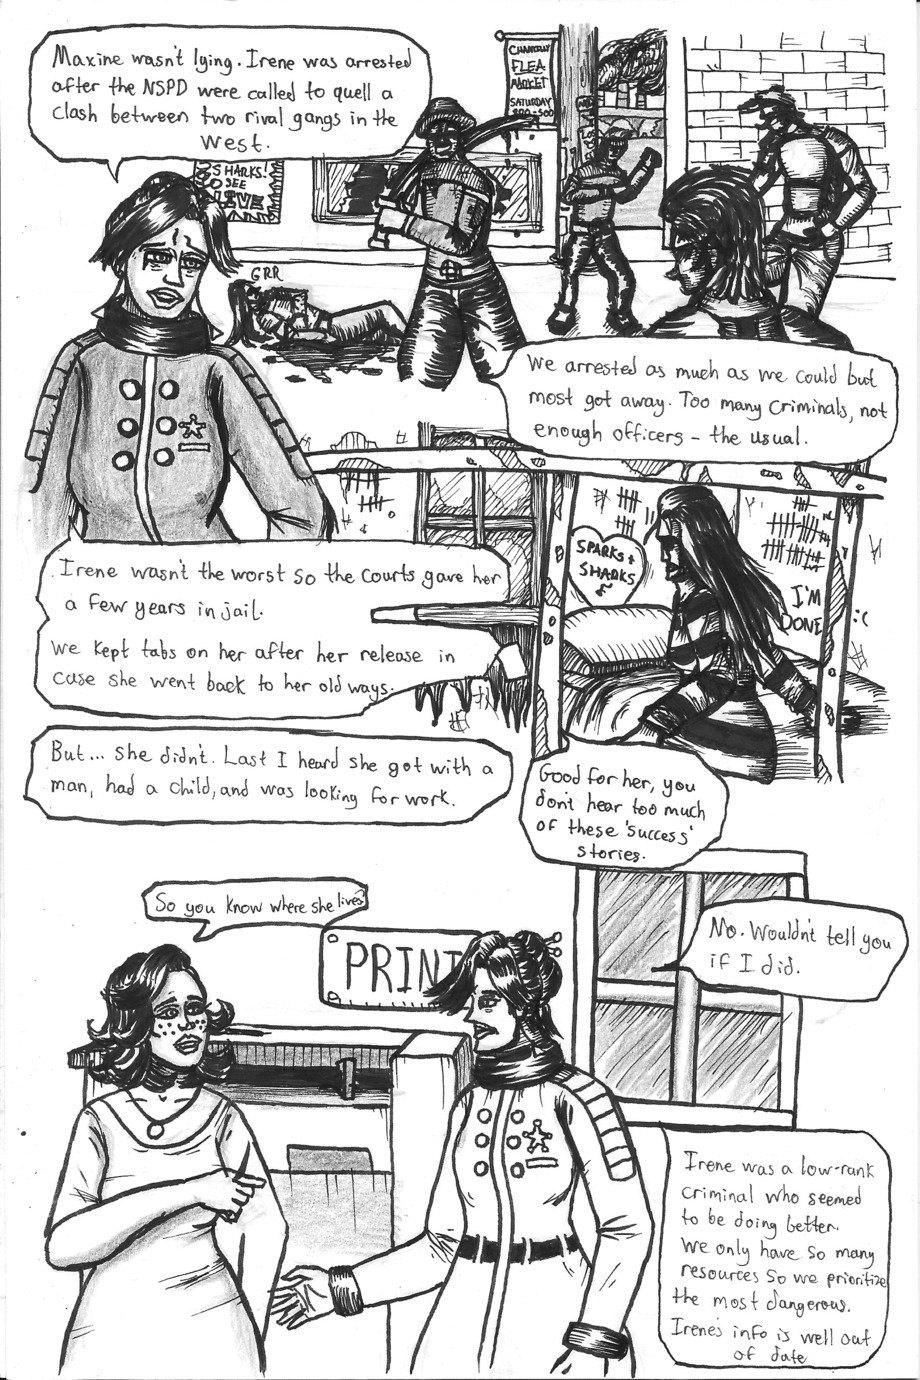 Maxine wasn't lying. Irene was arrested
after the NSPD were called to quell a
clash between two rival gangs in the
west.
FLEA
MARKET
SATURDAY
SHARKS!
SEE
LIVE
GRR
We arrested as much as we could but
most got away. Too many criminals, not
enough officers – the usual.
Irene wasn't the worst so the courts gave her
a few years in jail.
We kept tabs on her after her release in
case she went back to her old ways.
SPARKS +
SHARKS
I'M
DONE :(
But... she didn't. Last I heard she got with a
man, had a child, and was looking for work.
Good for her, you
don't hear too much
of these 'success'
stories.
So you know where she lives?
PRINT
No. Wouldn't tell you
if I did.
Irene was a low-rank
criminal who seemed
to be doing better.
We only have so many
resources so we prioritize
the most dangerous.
Irene's info is well out
of date